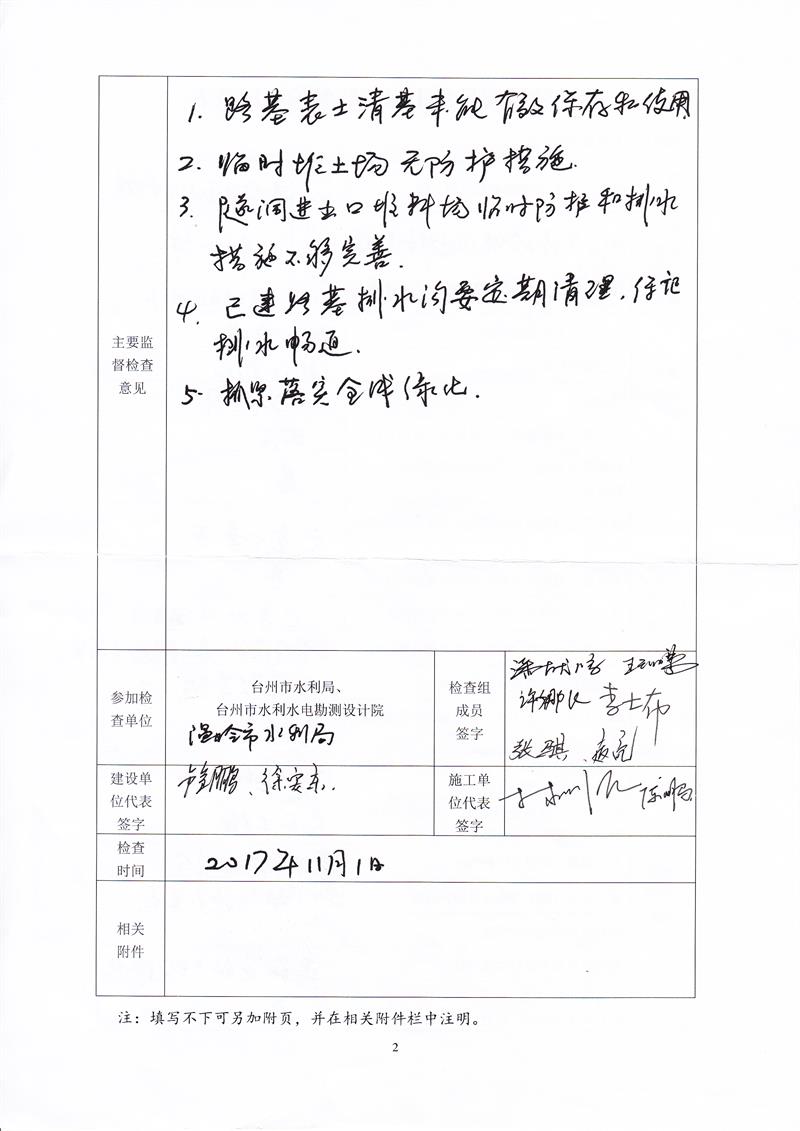 1. 路基表土清基未能有效保存和使用
2. 临时堆土场无防护措施.
3. 隧洞进出口堆料场临时防护和排水
措施不够完善.
4. 已建路基排水沟要定期清理，保证
排水畅通.
5. 抓紧落实全线绿化.
主要监
督检查
意见
参加检
查单位
台州市水利局、
台州市水利水电勘测设计院
温岭市水利局
检查组
成员
签字
李士布
建设单
位代表
签字
施工单
位代表
签字
检查
时间
2017年11月1日
相关
附件
注：填写不下可另加附页，并在相关附件栏中注明。
2